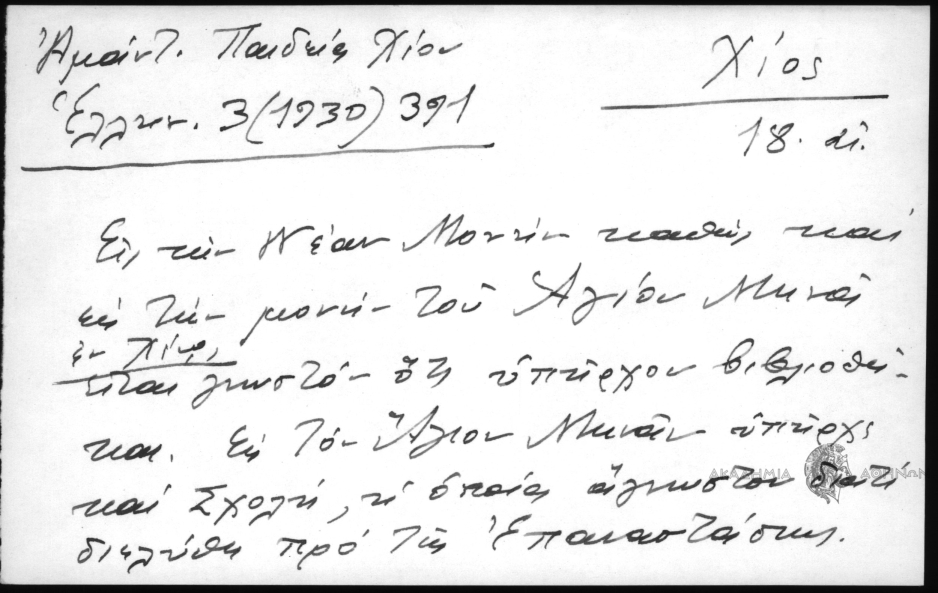 Ἀμάντ. Παιδεία Χίου
Χίος
Ἑλλην. 3 (1930) 391
18. αἰ.
Εἰς τὴν Νέαν Μονὴν καθὼς καὶ
εἰς τὴν μονὴν τοῦ Ἁγίου Μηνᾶ
ἐν Χίῳ,
εἶναι γνωστὸν ὅτι ὑπῆρχον βιβλιοθῆ-
και. Εἰς τὸν Ἅγιον Μηνᾶν ὑπῆρχε
ΑΚΑΔΗΜΙΑ ΑΘΗΝΩΝ
καὶ Σχολή, ἡ ὁποία ἄγνωστον διατί
διελύθη πρὸ τῆς Ἐπαναστάσεως.